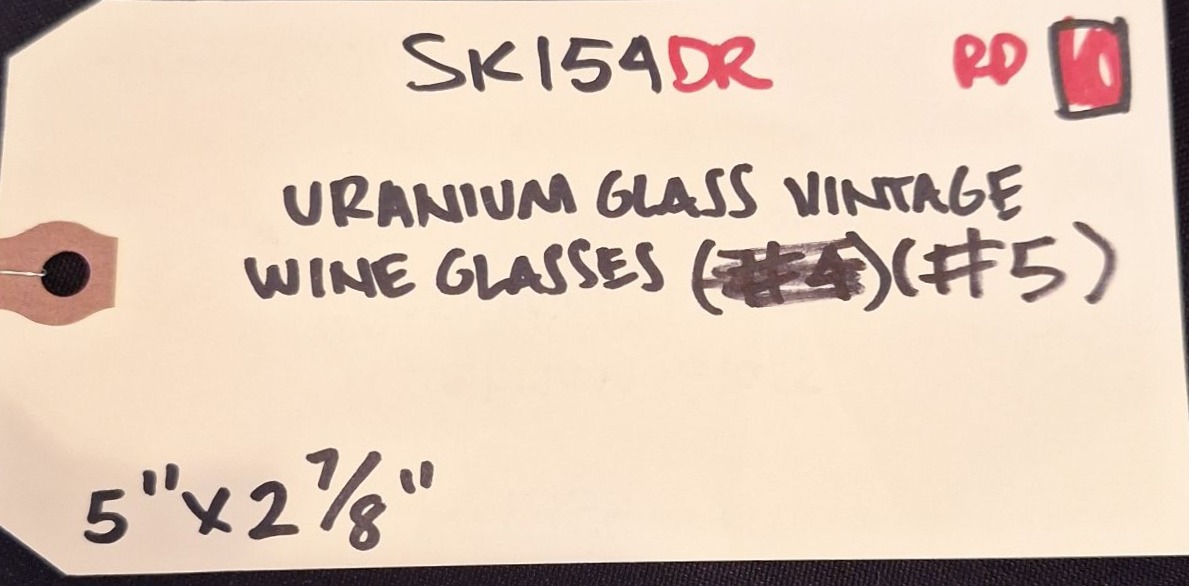 SK154DR RD
URANIUM GLASS VINTAGE
WINE GLASSES (#4)(#5)
5"x2 7/8"